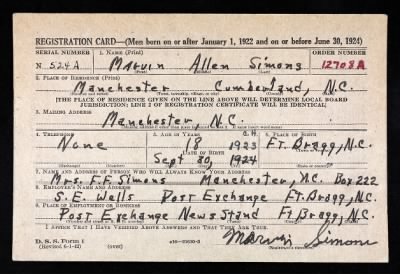 REGISTRATION CARD—(Men born on or after January 1, 1922 and on or before June 30, 1924)
SERIAL NUMBER 1. NAME (Print) ORDER NUMBER
N 524A Marvin Allen Simons 12708A
(First) (Middle) (Last)
2. PLACE OF RESIDENCE (Print)
Manchester Cumberland, N.C.
(Number and street) (Town, township, village, or city) (County) (State)
[THE PLACE OF RESIDENCE GIVEN ON THE LINE ABOVE WILL DETERMINE LOCAL BOARD
JURISDICTION; LINE 2 OF REGISTRATION CERTIFICATE WILL BE IDENTICAL]
3. MAILING ADDRESS
Manchester, N.C.
4. TELEPHONE 5. AGE IN YEARS 6. PLACE OF BIRTH
None 18 1923 Ft. Bragg, N.C.
DATE OF BIRTH
Sept 30, 1924
(Exchange) (Number) (Mo.) (Day) (Yr.)
7. NAME AND ADDRESS OF PERSON WHO WILL ALWAYS KNOW YOUR ADDRESS
Mrs. F. F. Simons Manchester, N.C. Box 222
8. EMPLOYER'S NAME AND ADDRESS
S. E. Wells Post Exchange Ft. Bragg, N.C.
9. PLACE OF EMPLOYMENT OR BUSINESS
Post Exchange News Stand Ft. Bragg, N.C.
(Number and street or R. F. D. number) (Town) (County) (State)
I AFFIRM THAT I HAVE VERIFIED ABOVE ANSWERS AND THAT THEY ARE TRUE.
D. S. S. Form 1
(Revised 6-1-42) (over) Marvin Simons